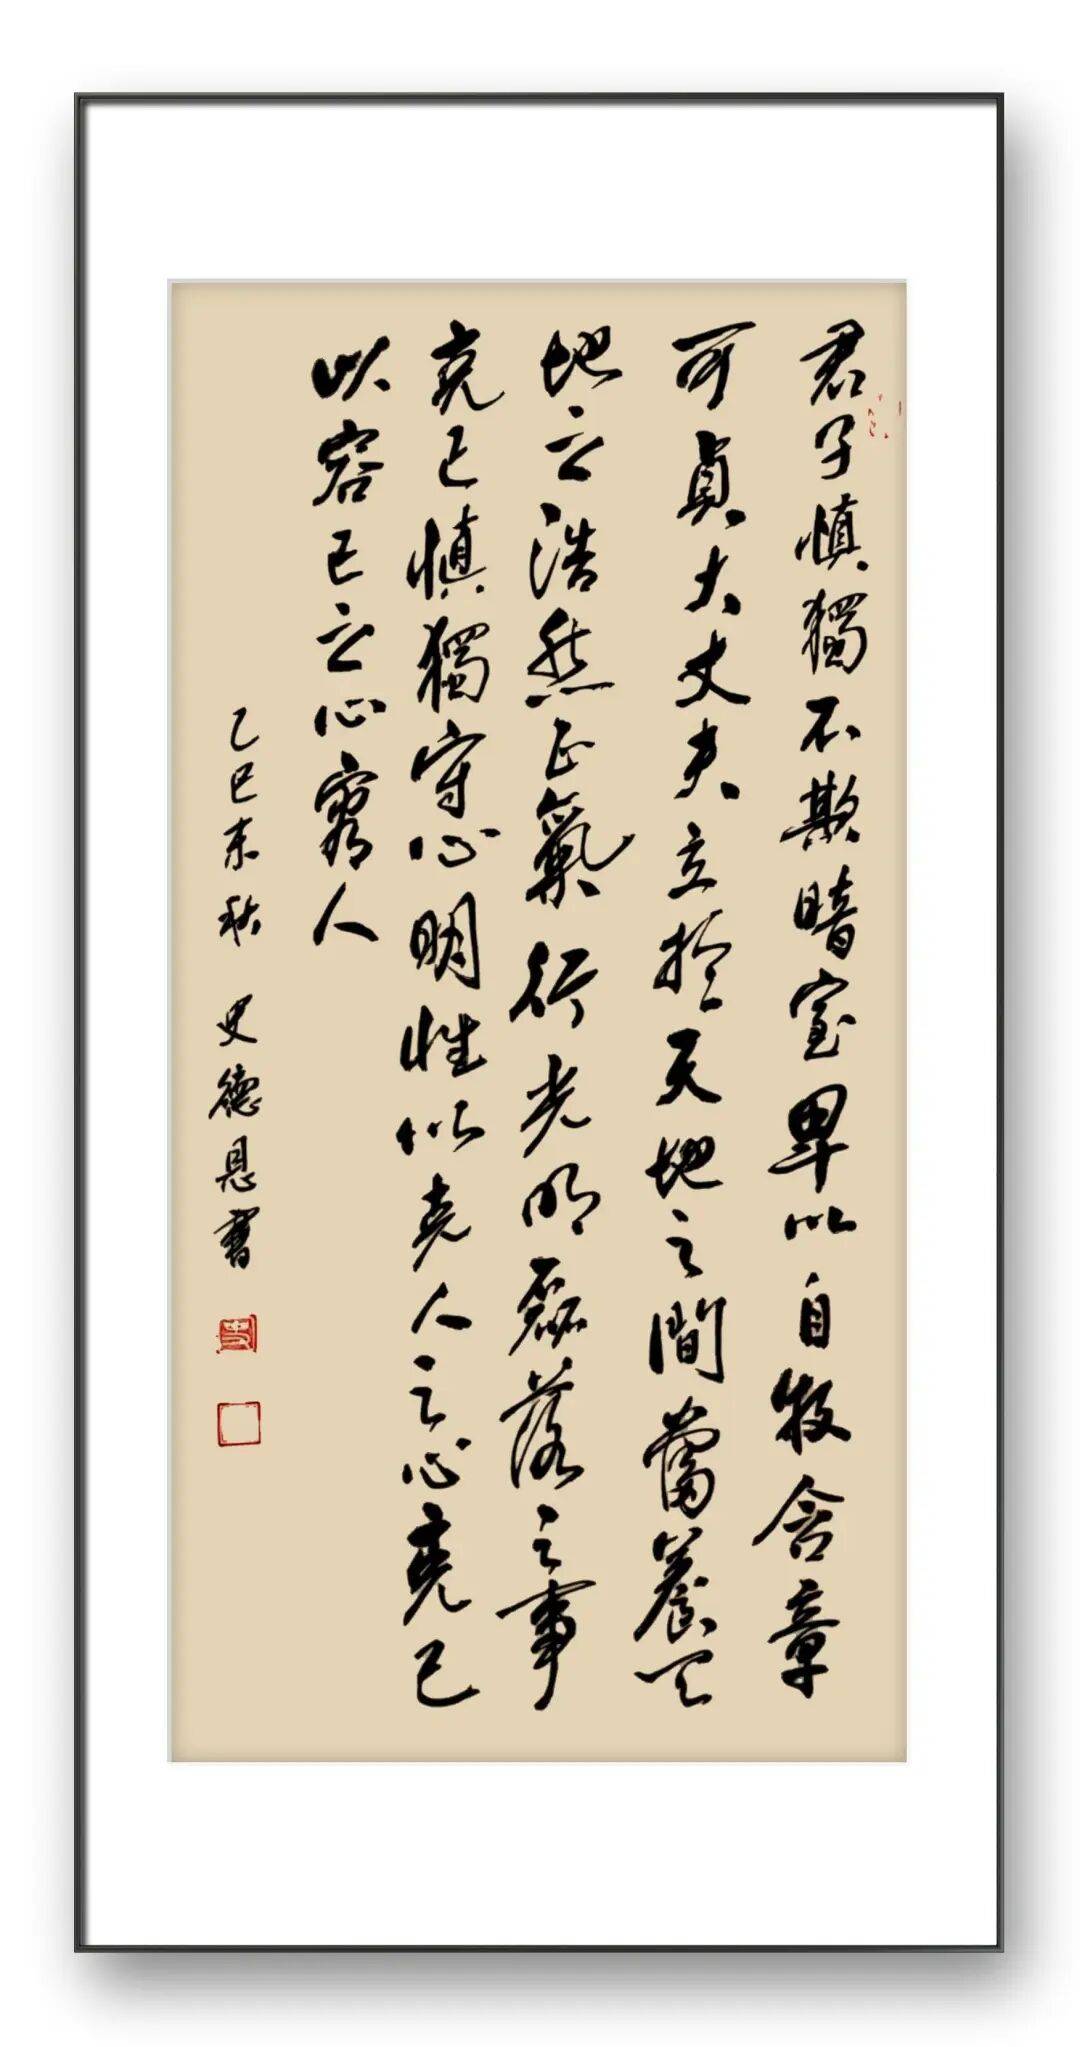 君子慎獨不欺暗室卑以自牧含章
可貞大丈夫立於天地之間當養天
地之浩然正氣行光明磊落之事
克己慎獨守心明性以克人之心克己
以容己之心容人
乙巳末秋 史德恩書